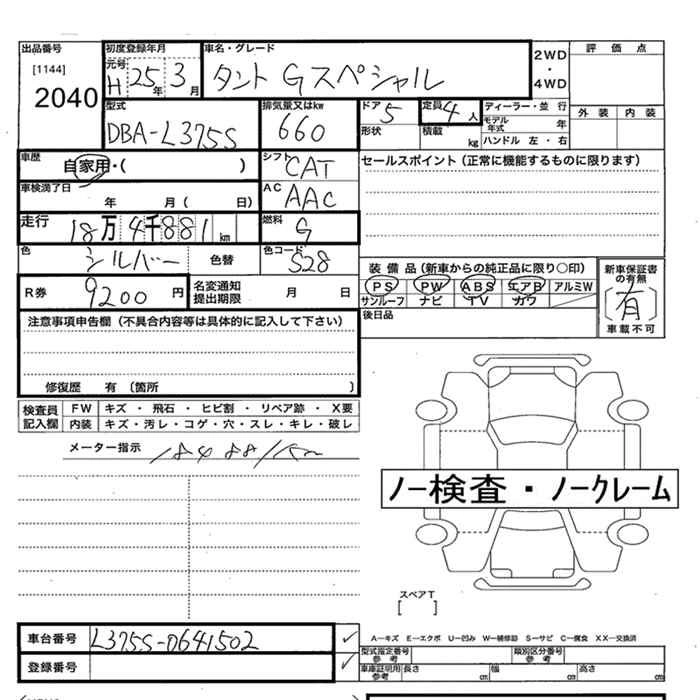 出品番号 初度登録年月 車名・グレード 2WD ・ 4WD 評価点
[1144] 2040 元号 H 25年 3月 タント Gスペシャル
型式 DBA-L375S 排気量又はkw 660 ドア 5 形状 定員 4人 積載 kg ディーラー・並行 モデル年式 年 ハンドル 左・右 外装 内装
車歴 自家用・( ) シフト CAT セールスポイント(正常に機能するものに限ります)
車検満了日 年 月( 日) AC AAC
走行 18万4千881km 燃料 G
色 シルバー 色替 色コード S28
装備品(新車からの純正品に限り○印) 新車保証書の有無
R券 9200円 名変通知提出期限 月 日 PS PW ABS エアB アルミW 〔有〕
サンルーフ ナビ TV カワ 車載不可
注意事項申告欄(不具合内容等は具体的に記入して下さい) 後日品
修復歴 有(箇所 )
検査員記入欄 FW キズ・飛石・ヒビ割・リペア跡・X要
内装 キズ・汚レ・コゲ・穴・スレ・キレ・破レ
メーター指示 184881km
ノー検査・ノークレーム
スペアT
[ ]
車台番号 L375S-0641502 ✓ A―キズ E―エクボ U―凹み W―補修跡 S―サビ C―腐食 XX―交換済
登録番号 ✓ 型式指定番号 参考 類別区分番号 参考
車庫証明用参考 長さ cm 幅 cm 高さ cm